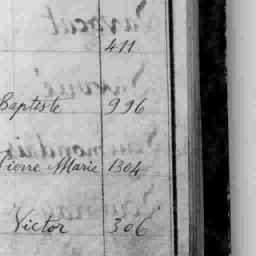 411
Baptiste 996
Pierre Marie 1304
Victor 306